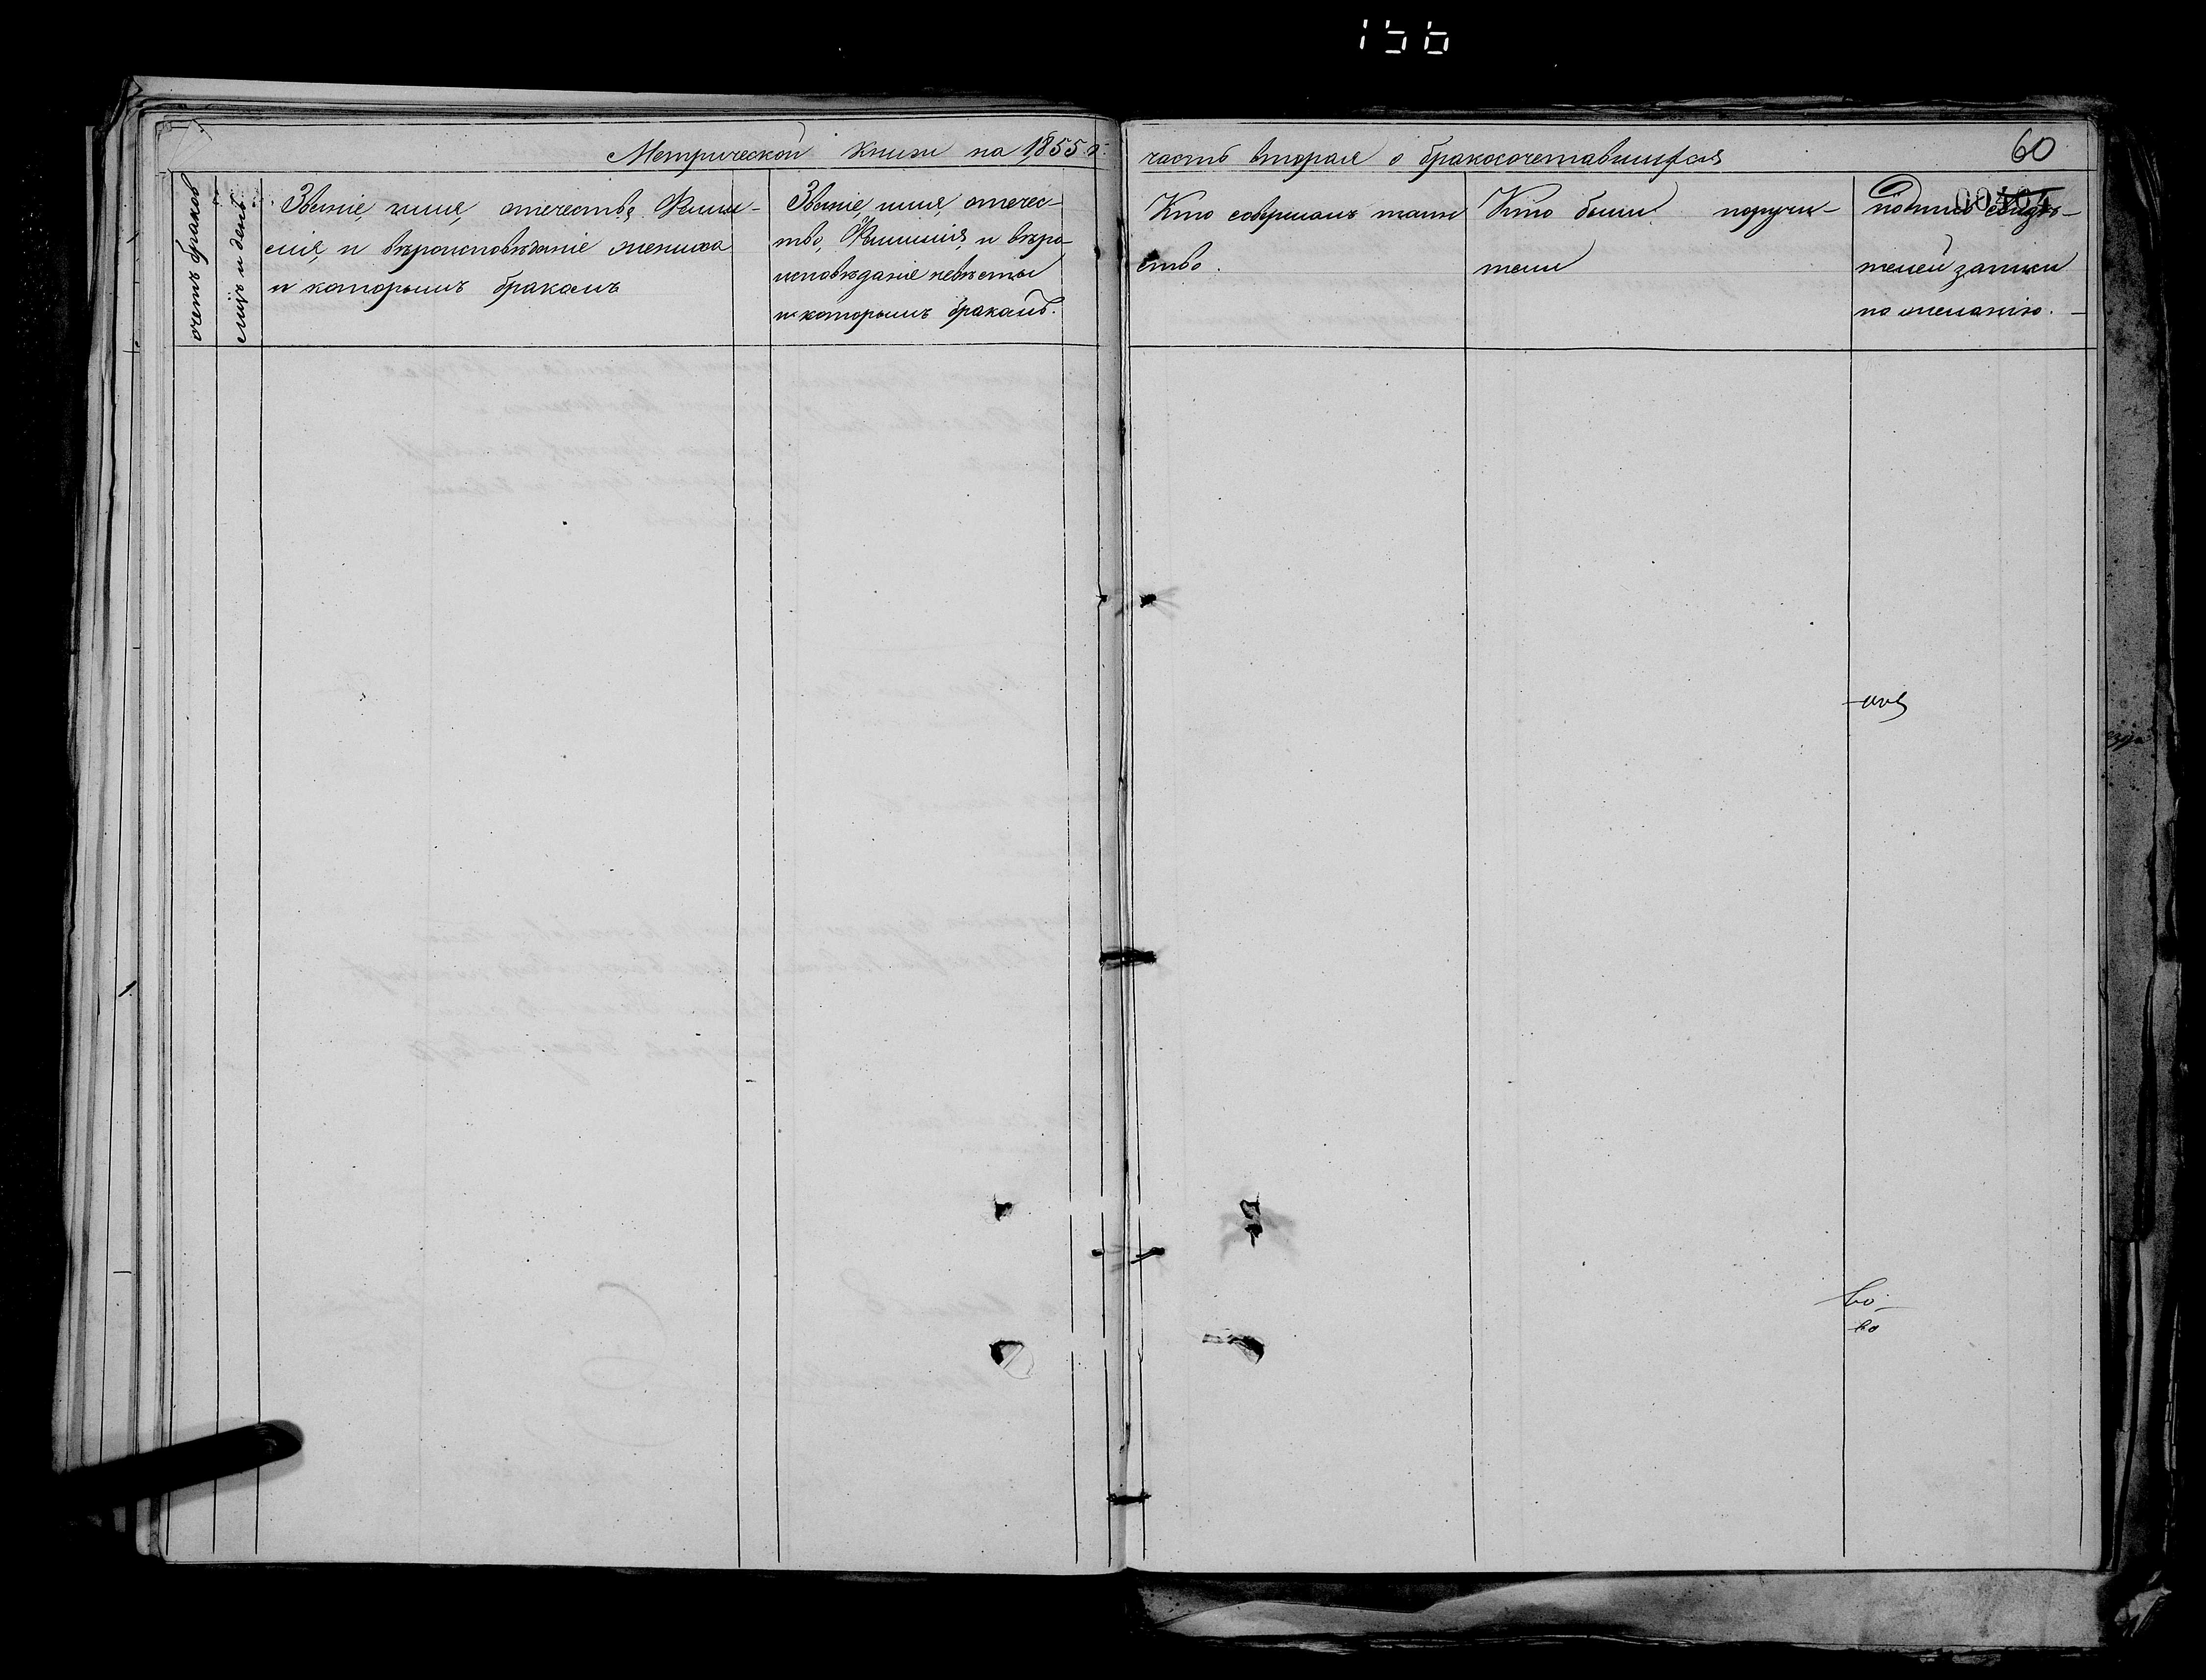 156
Метрической книги на 1855 г.
часть вторая о бракосочетавшихся
60
счетъ браковъ
мсцъ и день
Званіе, имя, отчество, Фами-
лія, и вѣроисповѣданіе жениха
и которымъ бракомъ
Званіе, имя, отчес-
тво, Фамилія, и вѣро-
исповѣданіе невѣсты
и которымъ бракомъ.
Кто совершалъ таин
ство.
Кто были поручи-
тели
подпись свидѣ-
телей записи
по желанію.
во-
во